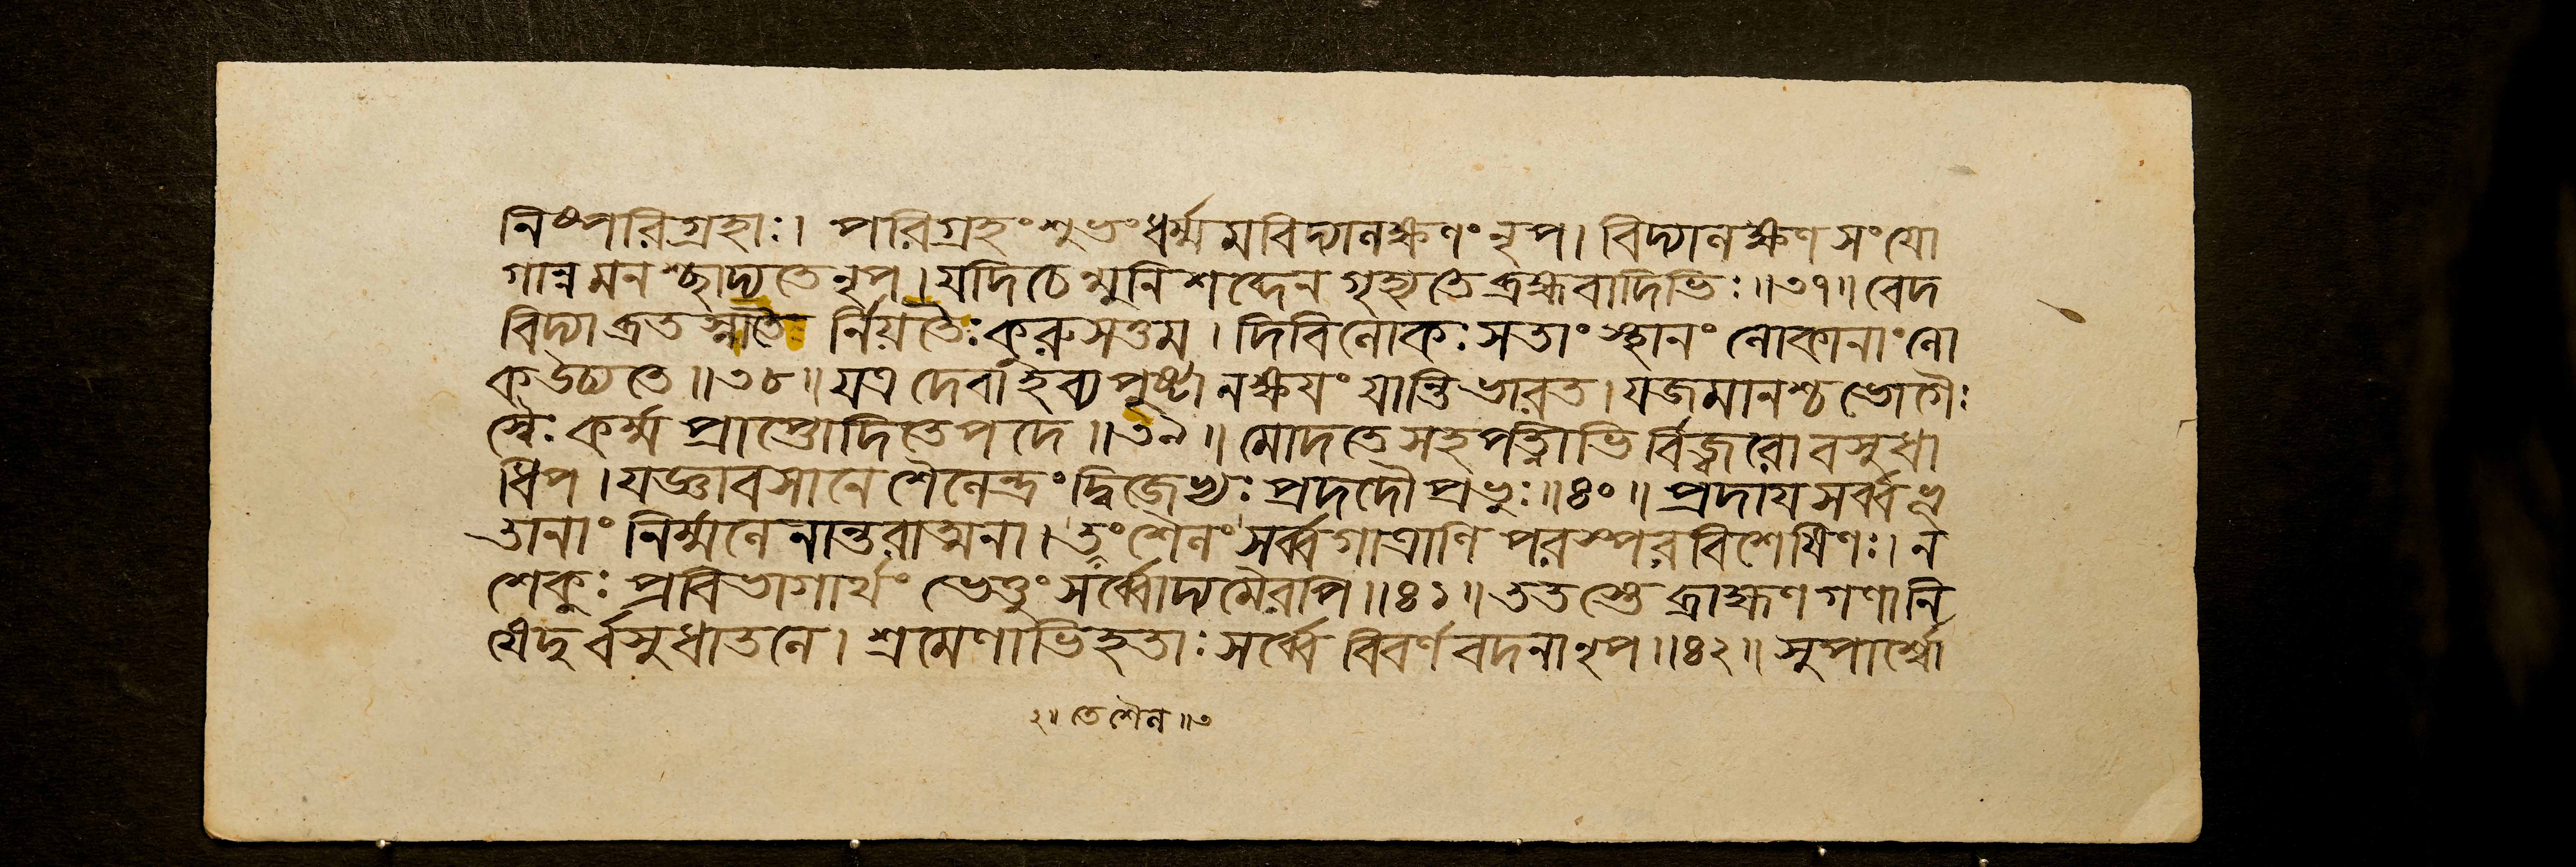 নিষ্পরিগ্রহাঃ। পরিগ্রহং শুভ্রং ধর্ম্মমবিদ্যালক্ষণং নৃপ। বিদ্যালক্ষণসংযো
গান্নমনশ্ছাদ্যতে নৃপ। যদি চেন্মুনিশব্দেন গৃহ্যতে ব্রহ্মবাদিভিঃ॥৩৭॥ বেদ
বিদ্যাব্রতস্নাতৈ র্নিয়তৈঃ কুরুসত্তম। দিবি লোকঃ সতাং স্থানং লোকানাং লো
ক উচ্যতে॥৩৮॥ যত্র দেবা হব্যপুষ্টা ন ক্ষয়ং যান্তি ভারত। যজমানশ্চ ভোগৈঃ
স্বৈঃ কর্ম্মপ্রাপ্তোদিতে পদে॥৩৯॥ মোদতে সহ পত্নীভি র্বিজ্বরো বসুধা
ধিপ। যজ্ঞাবসানে শৈলেন্দ্রং দ্বিজেভ্যঃ প্রদদৌ প্রভুঃ॥৪০॥ প্রদায় সর্ব্বভূ
তানাং নির্ম্মলেনান্তরাত্মনা। তং শৈলং সর্ব্বগাত্রাণি পরস্পরবিশেষিণঃ। ন
শেকুঃ প্রবিভাগার্থং ভেত্তুং সর্ব্বোদ্যমৈরপি॥৪১॥ ততস্তে ব্রাহ্মণগণা নি
ষেদু র্বসুধাতলে। শ্রমেণাভিহতাঃ সর্ব্বে বিবর্ণবদনা নৃপ॥৪২॥ সুপার্শ্বো
২॥ তে শৈল॥৩